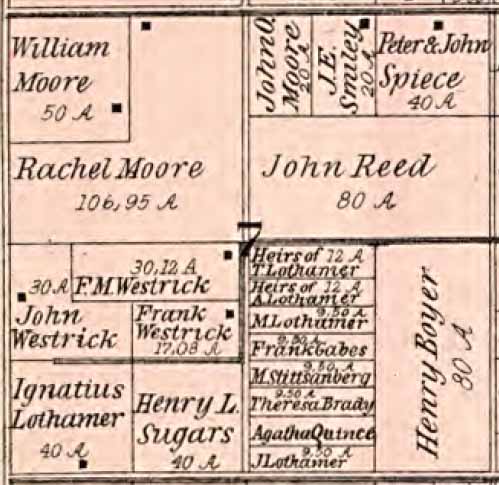 William
Moore
50 A
Rachel Moore
106,95 A
John O.
Moore
20 A
J.E.
Smiley
20 A
Peter & John
Spiece
40 A
John Reed
80 A
7
30 A
John
Westrick
30,12 A
F.M. Westrick
Frank
Westrick
17,08 A
Ignatius
Lothamer
40 A
Henry L.
Sugars
40 A
Heirs of 12 A
T. Lothamer
Heirs of 12 A
A. Lothamer
9,50 A
M. Lothamer
9,50 A
Frank Gabes
9,50 A
M. Stittsanberg
9,50 A
Theresa Brady
Agatha Quince
9,50 A
J. Lothamer
Henry Boyer
80 A